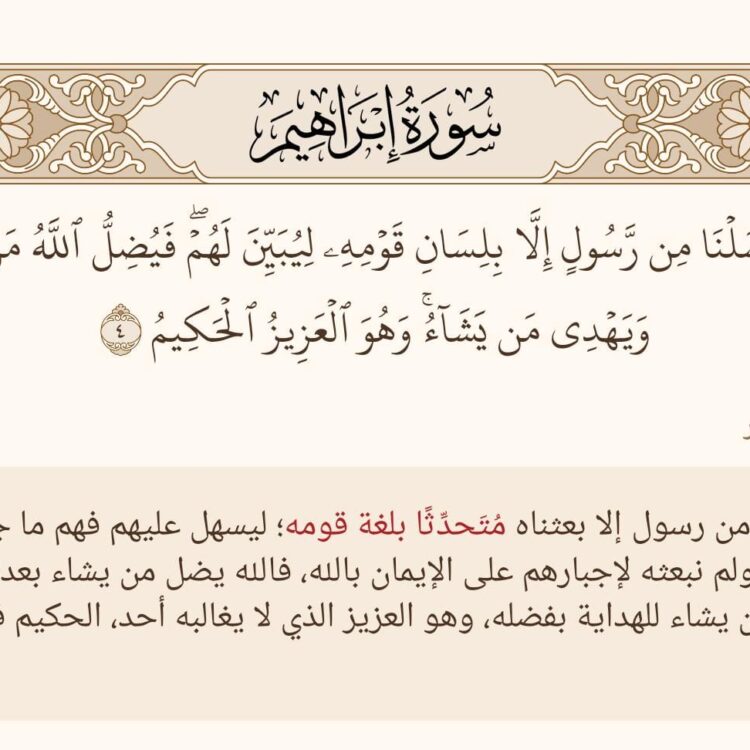 سُورَةُ إِبْرَاهِيمَ
مِن رَّسُولٍ إِلَّا بِلِسَانِ قَوْمِهِۦ لِيُبَيِّنَ لَهُمْۖ فَيُضِلُّ ٱللَّهُ
وَيَهْدِى مَن يَشَآءُۚ وَهُوَ ٱلْعَزِيزُ ٱلْحَكِيمُ ٤
من رسول إلا بعثناه مُتَحدِّثًا بلغة قومه؛ ليسهل عليهم فهم ما
ولم نبعثه لإجبارهم على الإيمان بالله، فالله يضل من يشاء
يشاء للهداية بفضله، وهو العزيز الذي لا يغالبه أحد، الحكيم